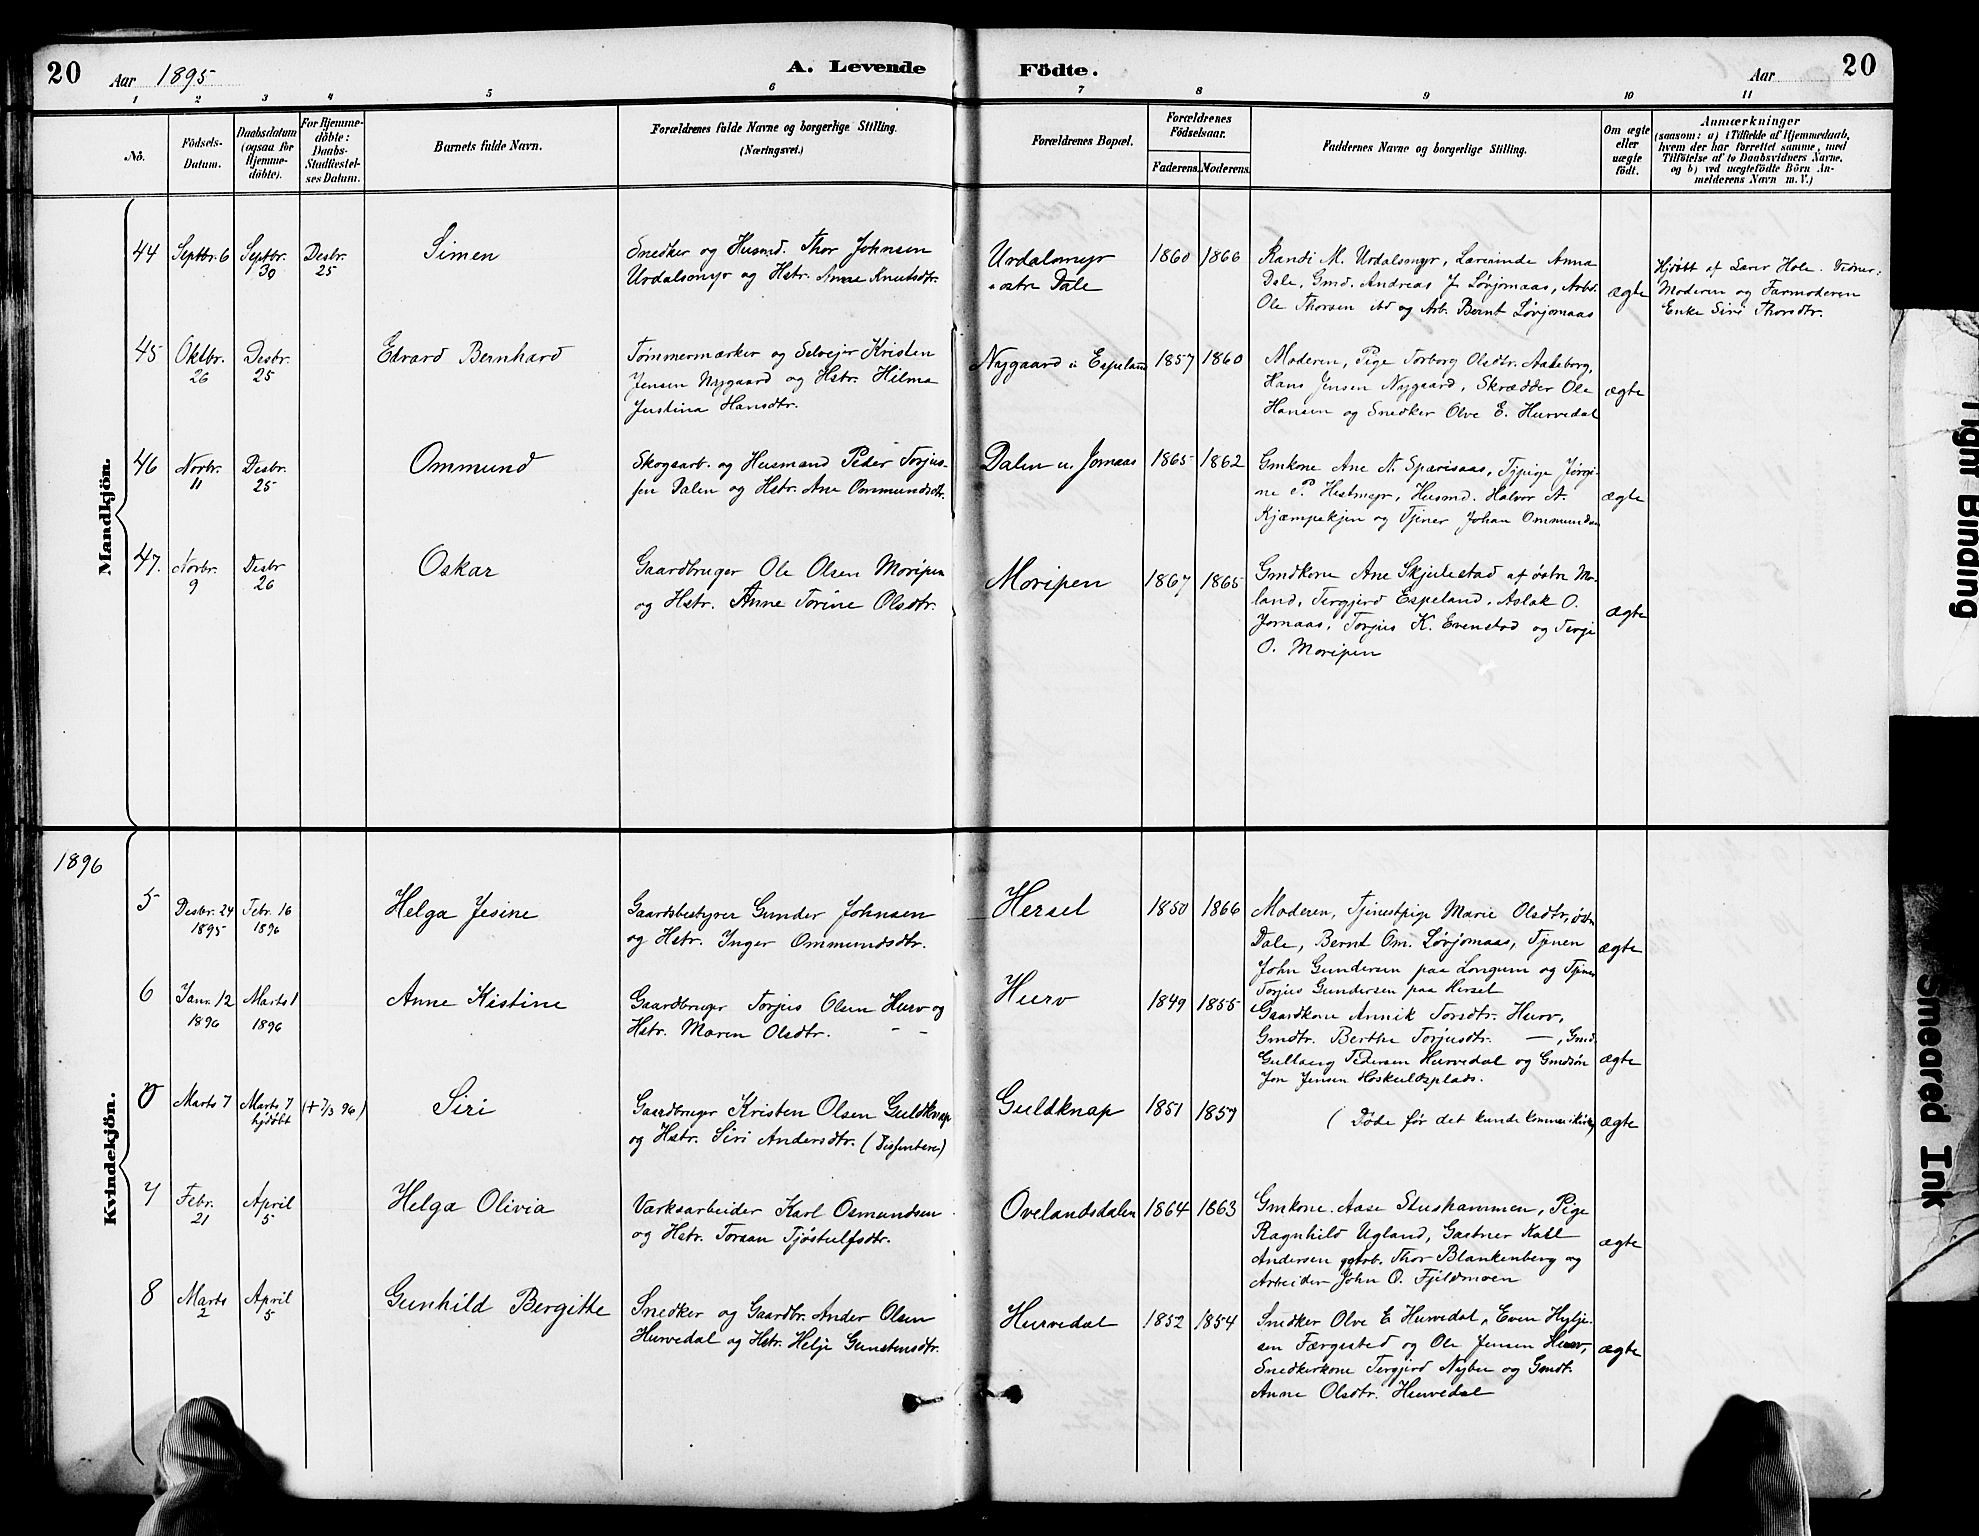 20
Aar 1895
A. Levende
Födte.
Aar
20
1
2
3
4
5
6
7
8
9
10
11
No.
Födsels-
Datum.
Daabsdatum
(ogsaa for
Hjemme-
döbte).
For Hjemme-
döbte:
Daabs-
Stadfæstel-
ses Datum.
Barnets fulde Navn.
Forældrenes fulde Navne og borgerlige Stilling.
(Næringsvei.)
Forældrenes Bopæl.
Forældrenes
Födselsaar.
Faderens.
Moderens.
Faddernes Navne og borgerlige Stilling.
Om ægte
eller
uægte
födt.
Anmærkninger
(saasom: a) i Tilfælde af Hjemmedaab,
hvem der har forrettet samme, med
Tilföielse af to Daabsvidners Navne,
og b) ved uægtefödte Börn An-
melderens Navn m. V.)
Mandkjön.
44
Septbr. 6
Septbr.
30
Desbr.
25
Simen
Snedker og Husmd. Thor Johnsen
Urdalsmyr og Hstr. Anne Knutsdtr.
Urdalsmyr
østre Dale
1860
1866
Randi M. Urdalsmyr, Lærerinde Anna
Dale, Gmd. Andreas J. Løvjomaas, Arbd.
Ole Thorsen ibd og Arb. Bernt Løvjomaas
ægte
Hjdøbt af Lærer Hole. Vidner:
Moderen og Farmoderen
Enke Siri Thorsdtr.
45
Oktbr.
26
Desbr.
25
Edvard Bernhard
Tømmermærker og Selveier Kristen
Jensen Nygaard og Hstr. Hilma
Justina Hansdtr.
Nygaard u. Espeland
1857
1860
Moderen, Pige Torborg Olsdtr. Aakeborg,
Hans Jensen Nygaard, Skrædder Ole
Hansen og Snedker Olve E. Hurvedal
ægte
46
Novbr.
11
Desbr.
25
Ommund
Skogsarb. og Husmand Peder Torjus-
sen Dalen og Hstr. Ane Ommundsdtr.
Dalen u. Jomaas
1865
1862
Gmkone Ane N. Sparisaas, Tjpige Jørgi-
ne P. Hestmyr, Husmd. Halvor A.
Kjæmpekjen og Tjener Johan Ommundsen
ægte
47.
Novbr.
9
Desbr
26
Oskar
Gaardbruger Ole Olsen Moripen
og Hstr. Anne Torine Olsdtr.
Moripen
1867
1865
Gmdkone Ane Skjulestad af østre Mo-
land, Tergjerd Espeland, Aslak O.
Jomaas, Torjus K. Evenstad og Terje
O. Moripen
ægte
1896
Kvindekjön.
5
Desbr. 24
1895
Febr. 16
1896
Helga Jesine
Gaardsbestyrer Gunder Johnsen
og Hstr. Inger Ommundsdtr.
Hersel
1850
1866
Moderen, Tjenestpige Marie Olsdtr, øst.
Dale, Bernt Om. Løvjomaas, Tjener
John Gundersen paa Longum og Tjener
Torjus Gundersen paa Hersel
ægte
6
Janr. 12
1896
Marts 1
1896
Anne Kistine
Gaardbruger Torjus Olsen Hurv og
Hstr. Maren Olsdtr. — —
Hurv
1849
1855
Gaardkone Annik Torsdtr. Hurv,
Gmdtr. Berthe Torjusdtr. —, Gmd.
Gullaug Pedersen Hurvedal og Gmdsøn
Jon Jensen Høskuldsplads.
ægte
0
Marts 7
Marts 7
hjdøbt
(+ 7/3 96)
Siri
Gaardbruger Kristen Olsen Guldknap
og Hstr. Siri Andersdtr. (Dissentere)
Guldknap
1851
1857
(Døde før det kunde komme i kirke)
ægte
7
Febr.
21
April
5
Helga Olivia
Værksarbeider Karl Osmundsen
og Hstr. Toraan Tjøstulfsdtr.
Ovelandsdalen
1864
1863
Gmkone Aase Stushammen, Pige
Ragnhild Ugland, Gartner Kall
Andersen ggarb. Thor Blankenberg og
Arbeider John O. Fjeldmoen
ægte
8
Marts
2
April
5
Gunhild Bergitte
Snedker og Gaardbr. Ander Olsen
Hurvedal og Hstr. Helje Gunstensdtr.
Hurvedal
1852
1854
Snedker Olve E Hurvedal, Even Hylje-
sen Færgested og Ole Jensen Hurv,
Snedkerkone Tergjerd Nybu og Gmdt.
Anne Olsdtr. Hurvedal
ægte
Tight Binding
Smeared Ink